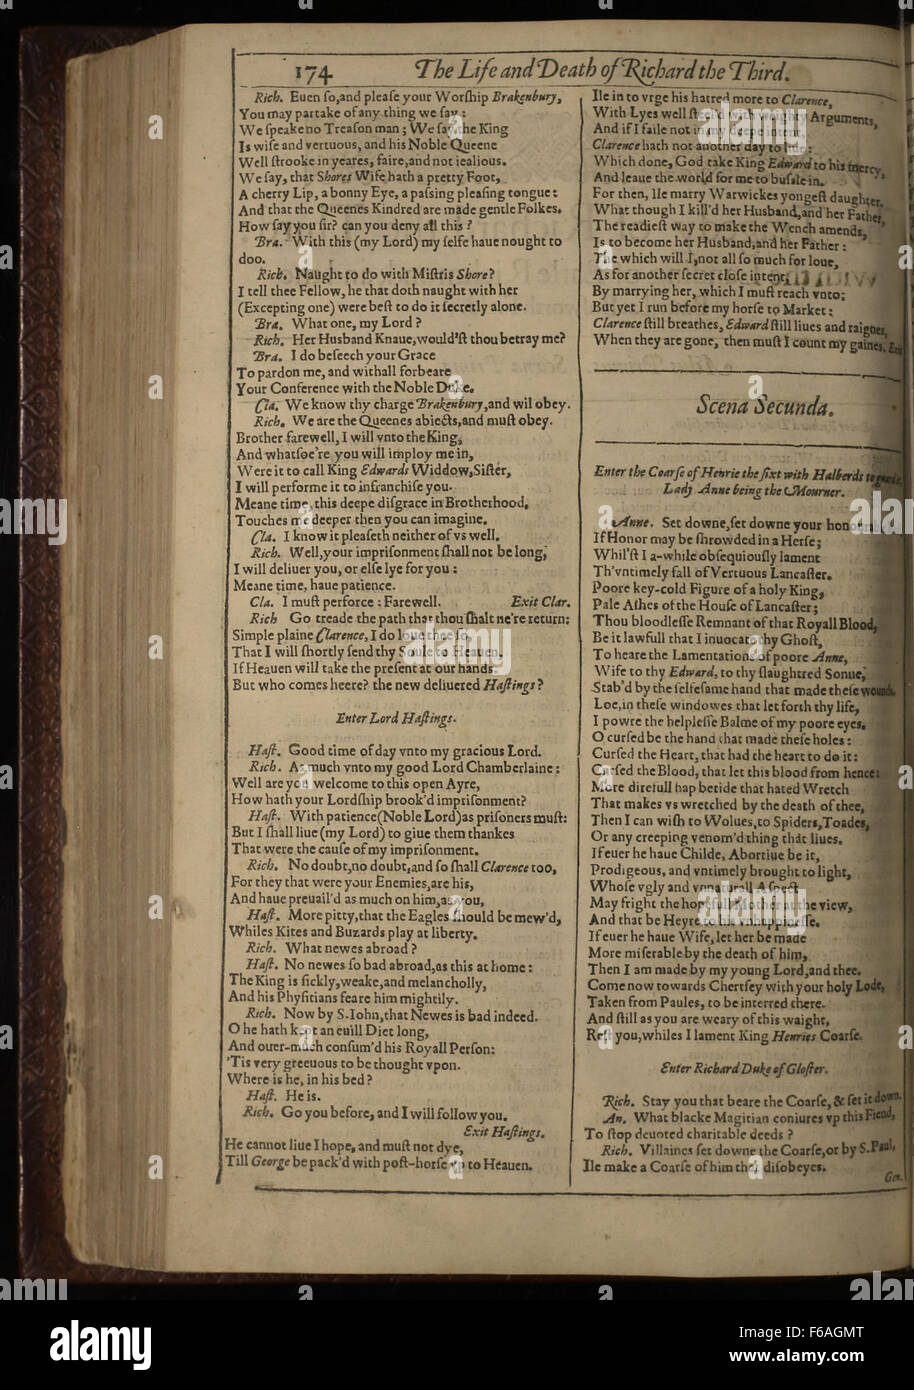 174 The Life and Death of Richard the Third.
Rich. Euen ſo,and pleaſe your Worſhip Brakenbury,
You may partake of any thing we ſay:
We ſpeake no Treaſon man; We ſay the King
Is wiſe and vertuous, and his Noble Queene
Well ſtrooke in yeares, faire,and not iealious.
We ſay, that Shores Wife hath a pretty Foot,
A cherry Lip, a bonny Eye, a paſsing pleaſing tongue:
And that the Queenes Kindred are made gentle Folkes.
How ſay you ſir? can you deny all this?
Bra. With this (my Lord) my ſelfe haue nought to
doo.
Rich. Naught to do with Miſtris Shore?
I tell thee Fellow, he that doth naught with her
(Excepting one) were beſt to do it ſecretly alone.
Bra. What one, my Lord?
Rich. Her Husband Knaue,would'ſt thou betray me?
Bra. I do beſeech your Grace
To pardon me, and withall forbeare
Your Conference with the Noble Duke.
Cla. We know thy charge Brakenbury,and wil obey.
Rich. We are the Queenes abiects,and muſt obey.
Brother farewell, I will vnto the King,
And whatſoe're you will imploy me in,
Were it to call King Edwards Widdow,Siſter,
I will performe it to infranchiſe you.
Meane time, this deepe diſgrace in Brotherhood,
Touches me deeper then you can imagine.
Cla. I know it pleaſeth neither of vs well.
Rich. Well,your impriſonment ſhall not be long,
I will deliuer you, or elſe lye for you:
Meane time, haue patience.
Cla. I muſt perforce: Farewell. Exit Clar.
Rich Go treade the path that thou ſhalt ne're return:
Simple plaine Clarence, I do loue thee ſo,
That I will ſhortly ſend thy Soule to Heauen,
If Heauen will take the preſent at our hands.
But who comes heere? the new deliuered Haſtings?
Enter Lord Haſtings.
Haſt. Good time of day vnto my gracious Lord.
Rich. As much vnto my good Lord Chamberlaine:
Well are you welcome to this open Ayre,
How hath your Lordſhip brook'd impriſonment?
Haſt. With patience(Noble Lord)as priſoners muſt:
But I ſhall liue (my Lord) to giue them thankes
That were the cauſe of my impriſonment.
Rich. No doubt,no doubt,and ſo ſhall Clarence too,
For they that were your Enemies,are his,
And haue preuail'd as much on him,as you,
Haſt. More pitty,that the Eagles ſhould be mew'd,
Whiles Kites and Buzards play at liberty.
Rich. What newes abroad?
Haſt. No newes ſo bad abroad,as this at home:
The King is ſickly,weake,and melancholly,
And his Phyſitians feare him mightily.
Rich. Now by S.Iohn,that Newes is bad indeed.
O he hath kept an euill Diet long,
And ouer-much conſum'd his Royall Perſon:
'Tis very greeuous to be thought vpon.
Where is he, in his bed?
Haſt. He is.
Rich. Go you before, and I will follow you.
Exit Haſtings.
He cannot liue I hope, and muſt not dye,
Till George be pack'd with poſt-horſe vp to Heauen.
Ile in to vrge his hatred more to Clarence,
With Lyes well ſteel'd with weighty Arguments,
And if I faile not in my deepe intent,
Clarence hath not another day to liue:
Which done, God take King Edward to his mercy,
And leaue the world for me to buſtle in.
For then, Ile marry Warwickes yongeſt daughter.
What though I kill'd her Husband,and her Father,
The readieſt way to make the Wench amends,
Is to become her Husband,and her Father:
The which will I,not all ſo much for loue,
As for another ſecret cloſe intent,
By marrying her, which I muſt reach vnto;
But yet I run before my horſe to Market:
Clarence ſtill breathes, Edward ſtill liues and raignes,
When they are gone, then muſt I count my gaines. Exit
Scena Secunda.
Enter the Coarſe of Henrie the ſixt with Halberds to guard it,
Lady Anne being the Mourner.
Anne. Set downe,ſet downe your honourable
If Honor may be ſhrowded in a Herſe;
Whil'ſt I a-while obſequiouſly lament
Th'vntimely fall of Vertuous Lancaſter.
Poore key-cold Figure of a holy King,
Pale Aſhes of the Houſe of Lancaſter;
Thou bloodleſſe Remnant of that Royall Blood,
Be it lawfull that I inuocate thy Ghoſt,
To heare the Lamentations of poore Anne,
Wife to thy Edward, to thy ſlaughtred Sonne,
Stab'd by the ſelfeſame hand that made theſe wounds.
Loe,in theſe windowes that let forth thy life,
I powre the helpleſſe Balme of my poore eyes.
O curſed be the hand that made theſe holes:
Curſed the Heart, that had the heart to do it:
Curſed the Blood, that let this blood from hence:
More direfull hap betide that hated Wretch
That makes vs wretched by the death of thee,
Then I can wiſh to Wolues,to Spiders,Toades,
Or any creeping venom'd thing that liues.
If euer he haue Childe, Abortiue be it,
Prodigeous, and vntimely brought to light,
Whoſe vgly and vnnaturall Aſpect
May fright the hopefull Mother at the view,
And that be Heyre to his vnhappineſſe.
If euer he haue Wife, let her be made
More miſerable by the death of him,
Then I am made by my young Lord,and thee.
Come now towards Chertſey with your holy Lode,
Taken from Paules, to be interred there.
And ſtill as you are weary of this waight,
Reſt you,whiles I lament King Henries Coarſe.
Enter Richard Duke of Gloſter.
Rich. Stay you that beare the Coarſe, & ſet it down.
An. What blacke Magitian coniures vp this Fiend,
To ſtop deuoted charitable deeds?
Rich. Villaines ſet downe the Coarſe,or by S.Paul,
Ile make a Coarſe of him that diſobeyes.
Gen.
alamy
alamy
alamy
alamy stock photo
F6AGMT
www.alamy.com